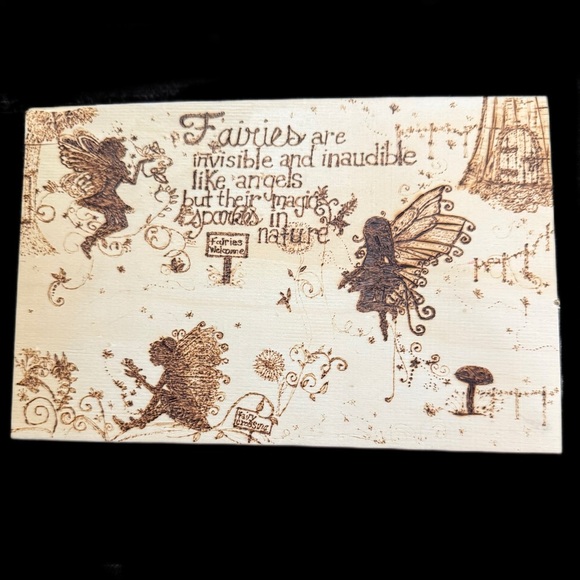 Fairies are
invisible and inaudible
like angels
but their magic
sparkles in
nature
Fairies
Welcome
Fairy